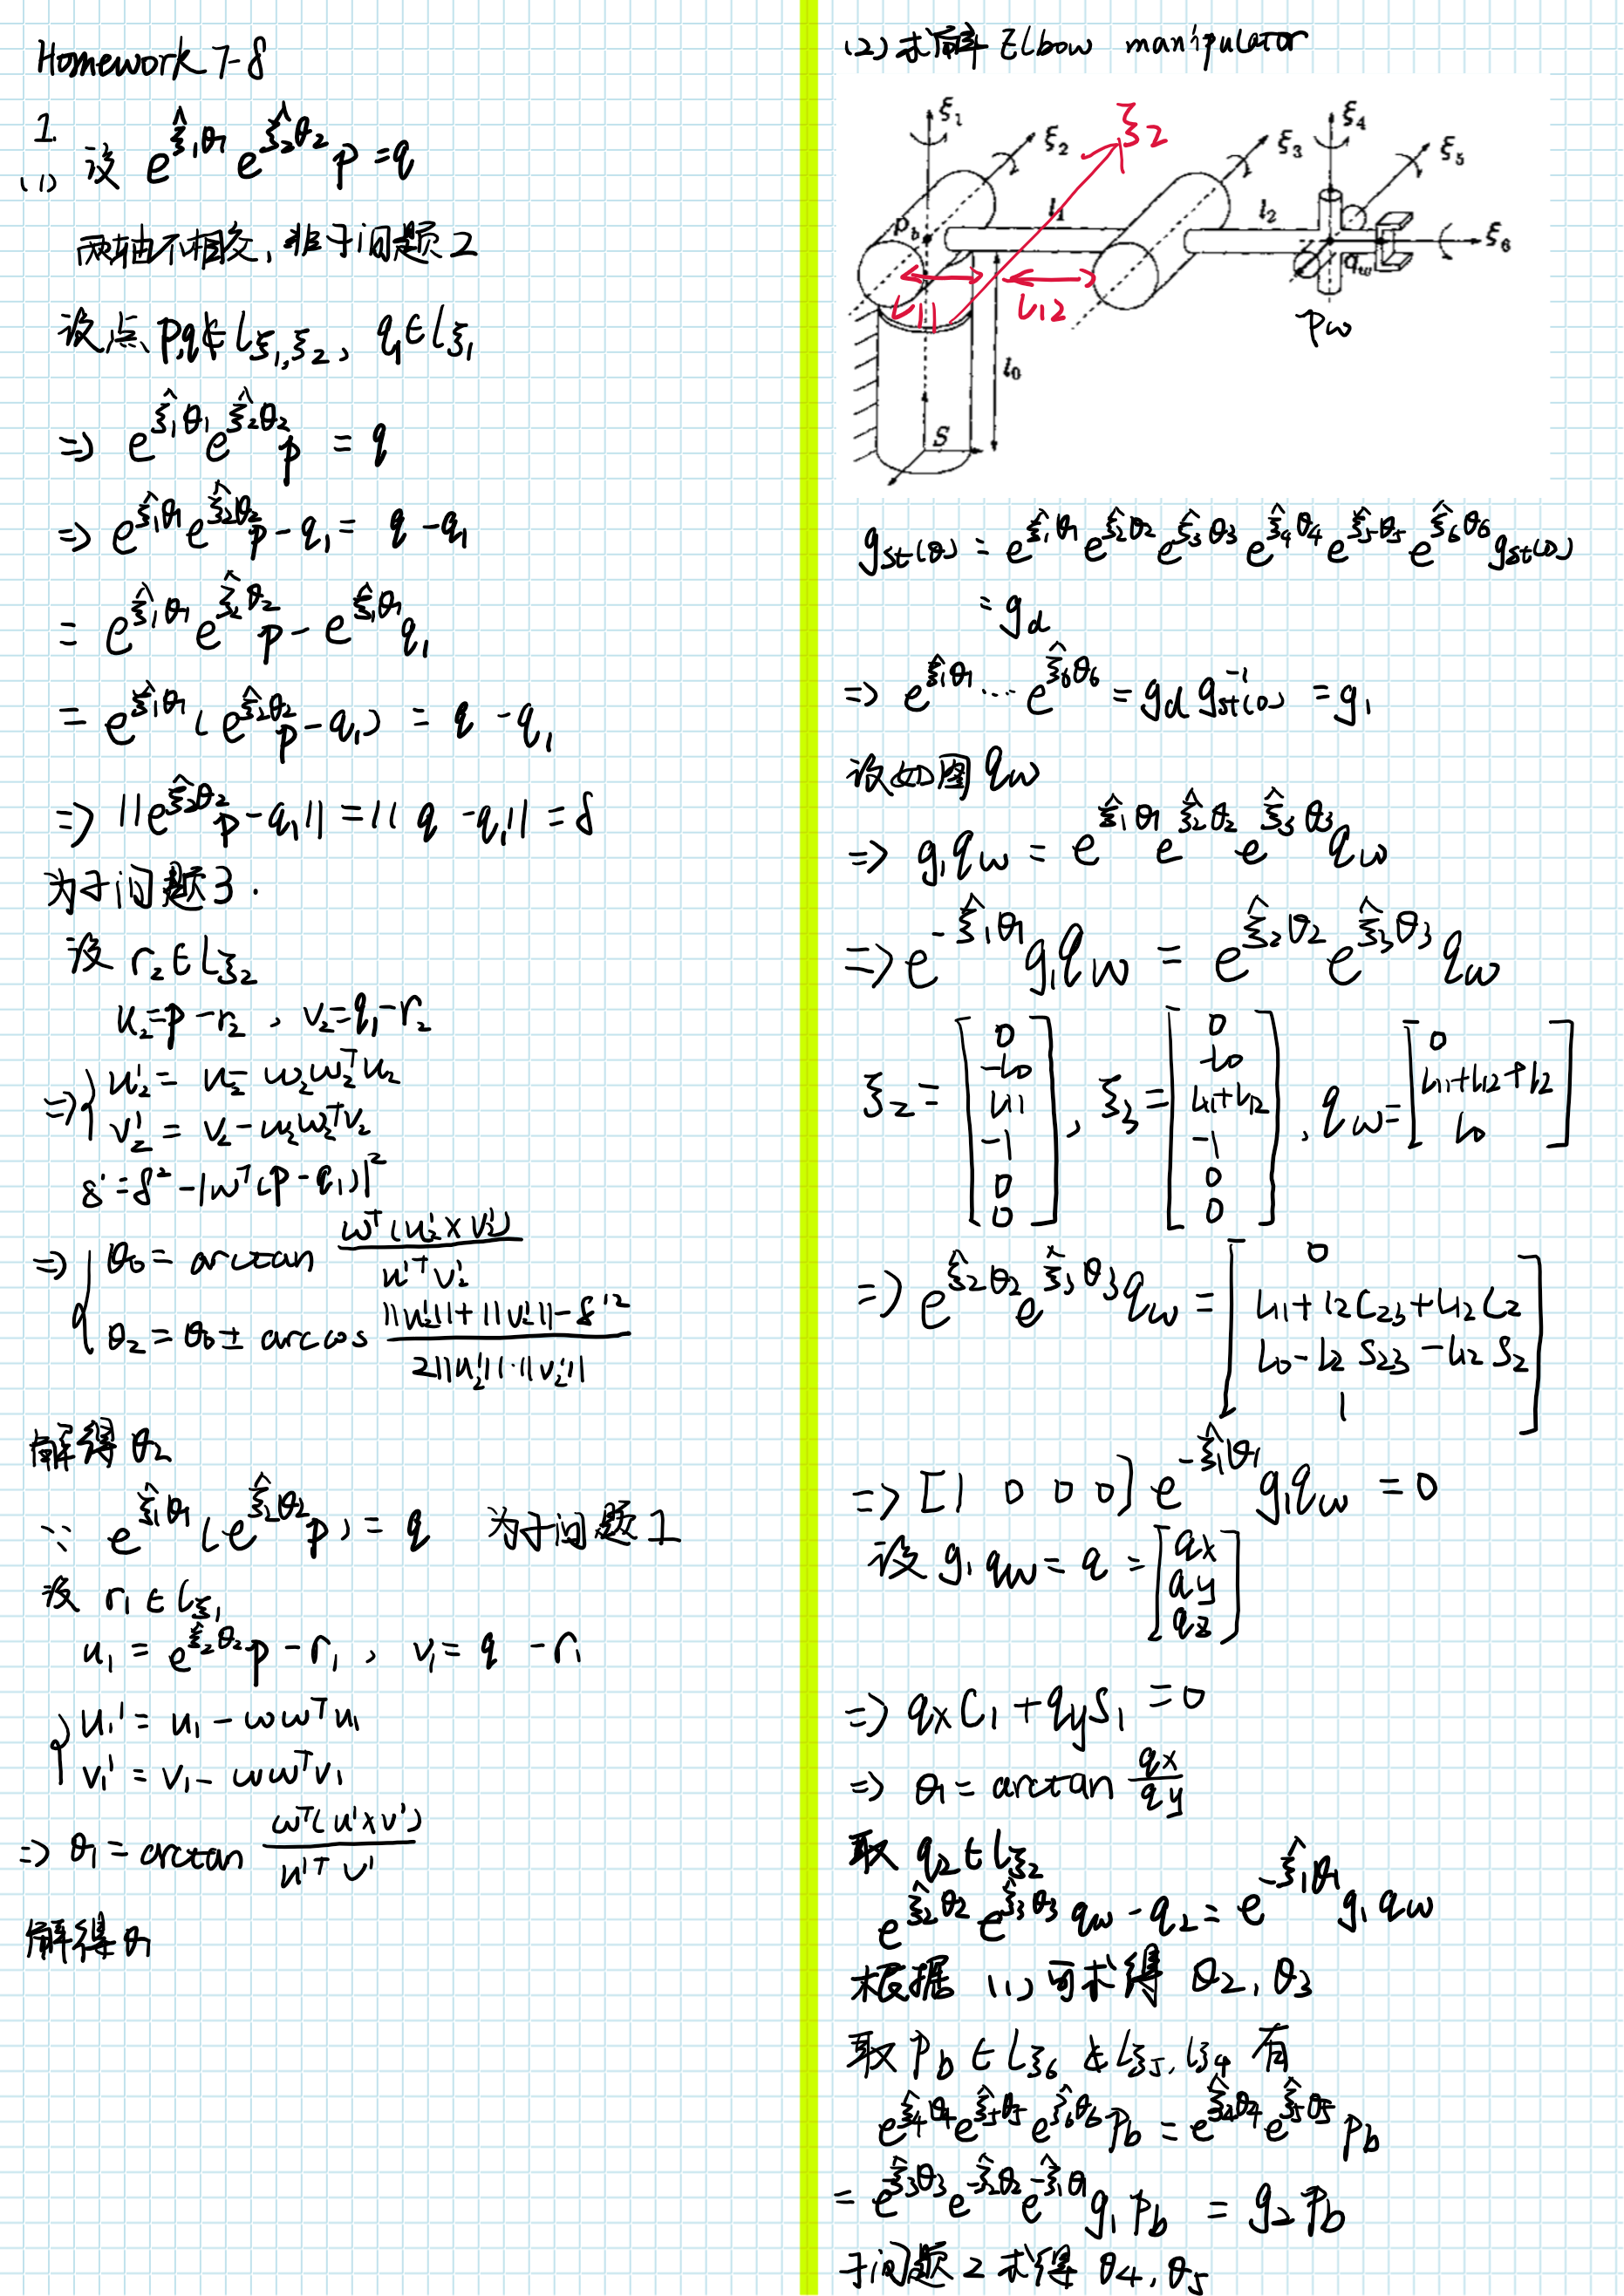 Homework 7-8
1.
(1) 设 e^{ξ̂₁θ₁} e^{ξ̂₂θ₂} p = q
两轴不相交, 非子问题2
设点 p,q∉l_{ξ₁,ξ₂}, q₁∈l_{ξ₁}
⇒ e^{ξ̂₁θ₁} e^{ξ̂₂θ₂} p = q
⇒ e^{ξ̂₁θ₁} e^{ξ̂₂θ₂} p - q₁ = q - q₁
= e^{ξ̂₁θ₁} e^{ξ̂₂θ₂} p - e^{ξ̂₁θ₁} q₁
= e^{ξ̂₁θ₁} (e^{ξ̂₂θ₂} p - q₁) = q - q₁
⇒ ||e^{ξ̂₂θ₂} p - q₁|| = || q - q₁|| = δ
为子问题3.
设 r₂∈l_{ξ₂}
u₂=p-r₂ , v₂=q₁-r₂
⇒ { u₂' = u₂ - ω₂ω₂ᵀu₂
v₂' = v₂ - ω₂ω₂ᵀv₂
δ' = δ² - |ωᵀ(p-q₁)|²
⇒ { θ₀ = arctan ωᵀ(u₂'×v₂') / u'ᵀv₂'
θ₂ = θ₀ ± arccos (||u₂'|| + ||v₂'|| - δ'²) / (2||u₂'||·||v₂'||)
解得 θ₂
∵ e^{ξ̂₁θ₁} (e^{ξ̂₂θ₂} p) = q 为子问题1
设 r₁∈l_{ξ₁}
u₁ = e^{ξ̂₂θ₂} p - r₁ , v₁ = q - r₁
{ u₁' = u₁ - ωωᵀu₁
v₁' = v₁ - ωωᵀv₁
⇒ θ₁ = arctan ωᵀ(u'×v') / u'ᵀv'
解得 θ₁
(2) 求解 Elbow manipulator
ξ₁ ξ₂ ξ2 ξ₃ ξ₄ ξ₅
p_b l₁ l₂ ξ₆
l11 l12 q_w
l₀ pw
S
g_{st}(θ) = e^{ξ̂₁θ₁} e^{ξ̂₂θ₂} e^{ξ̂₃θ₃} e^{ξ̂₄θ₄} e^{ξ̂₅θ₅} e^{ξ̂₆θ₆} g_{st}(0)
= g_d
⇒ e^{ξ̂₁θ₁} ··· e^{ξ̂₆θ₆} = g_d g_{st}⁻¹(0) = g₁
设如图 q_w
⇒ g₁q_w = e^{ξ̂₁θ₁} e^{ξ̂₂θ₂} e^{ξ̂₃θ₃} q_w
⇒ e^{-ξ̂₁θ₁} g₁q_w = e^{ξ̂₂θ₂} e^{ξ̂₃θ₃} q_w
ξ₂ = [0 -l0 l11 -1 0 0], ξ₃ = [0 -l0 l11+l12 -1 0 0], q_w = [0 l11+l12+l2 l0]
⇒ e^{ξ̂₂θ₂} e^{ξ̂₃θ₃} q_w = [0 l11+l2C23+l12C2 l0-l2S23-l12S2 1]
⇒ [1 0 0 0] e^{-ξ̂₁θ₁} g₁q_w = 0
设 g₁q_w = q = [qx qy qz]
⇒ qxC₁ + qyS₁ = 0
⇒ θ₁ = arctan qx / qy
取 q₂∈l_{ξ₂}
e^{ξ̂₂θ₂} e^{ξ̂₃θ₃} q_w - q₂ = e^{-ξ̂₁θ₁} g₁q_w
根据 (1) 可求得 θ₂, θ₃
取 p_b∈l_{ξ₆} ∉ l_{ξ₅}, l_{ξ₄} 有
e^{ξ̂₄θ₄} e^{ξ̂₅θ₅} e^{ξ̂₆θ₆} p_b = e^{ξ̂₄θ₄} e^{ξ̂₅θ₅} p_b
= e^{-ξ̂₃θ₃} e^{-ξ̂₂θ₂} e^{-ξ̂₁θ₁} g₁p_b = g₂p_b
子问题2求得 θ₄, θ₅